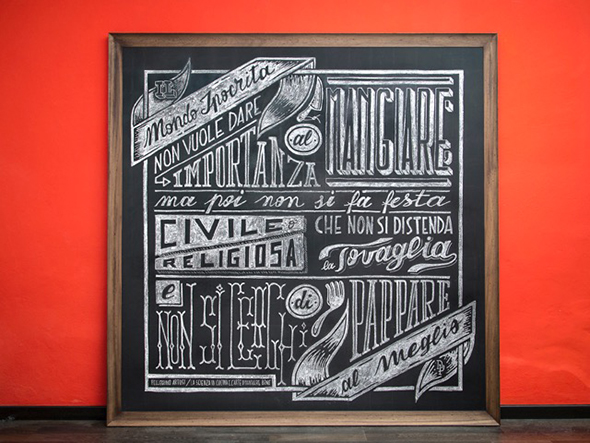 IL
Mondo Ipocrita
NON VUOLE DARE
IMPORTANZA
al
MANGIARE;
ma poi non si fa festa
CIVILE o
RELIGIOSA
CHE NON SI DISTENDA
la Tovaglia
e
NON SI CERCHi
di
PAPPARE
al meglio
PELLEGRINO ARTUSI / LA SCIENZA IN CUCINA E L'ARTE DI MANGIAR BENE